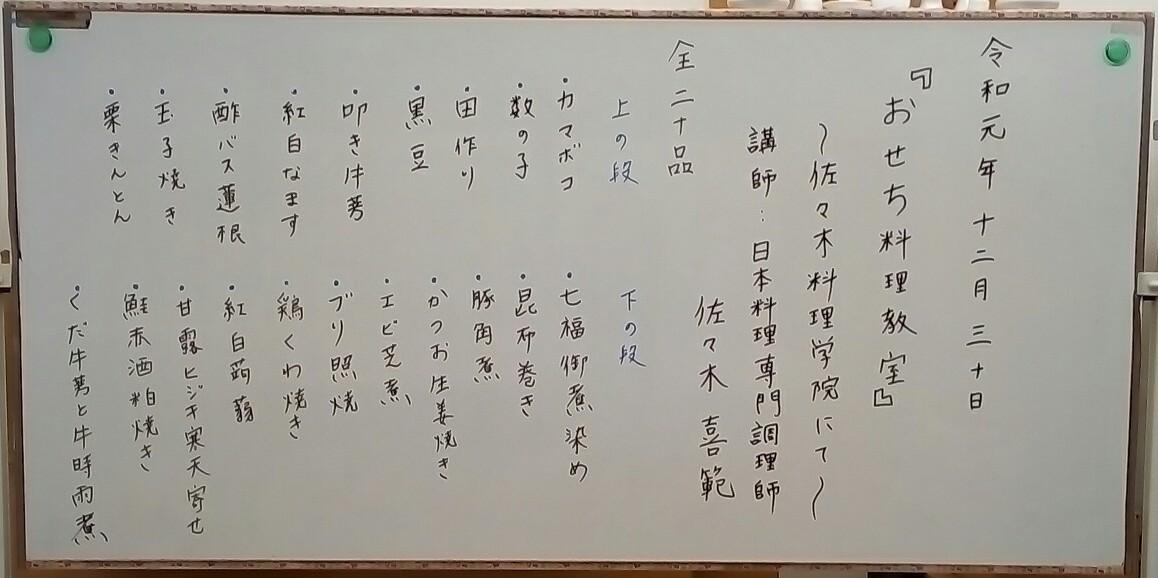 令和元年 十二月 三十日
『おせち料理教室』
～佐々木料理学院にて～
講師：日本料理専門調理師
佐々木 喜範
全二十品
上の段
・カマボコ
・数の子
・田作り
・黒豆
・叩き牛蒡
・紅白なます
・酢バス蓮根
・玉子焼き
・栗きんとん
下の段
・七福御煮染め
・昆布巻き
・豚角煮
・かつお生姜焼き
・エビ芝煮
・ブリ照焼
・鶏くわ焼き
・紅白蒟蒻
・甘露ヒジキ寒天寄せ
・鮭赤酒粕焼き
・くだ牛蒡と牛時雨煮